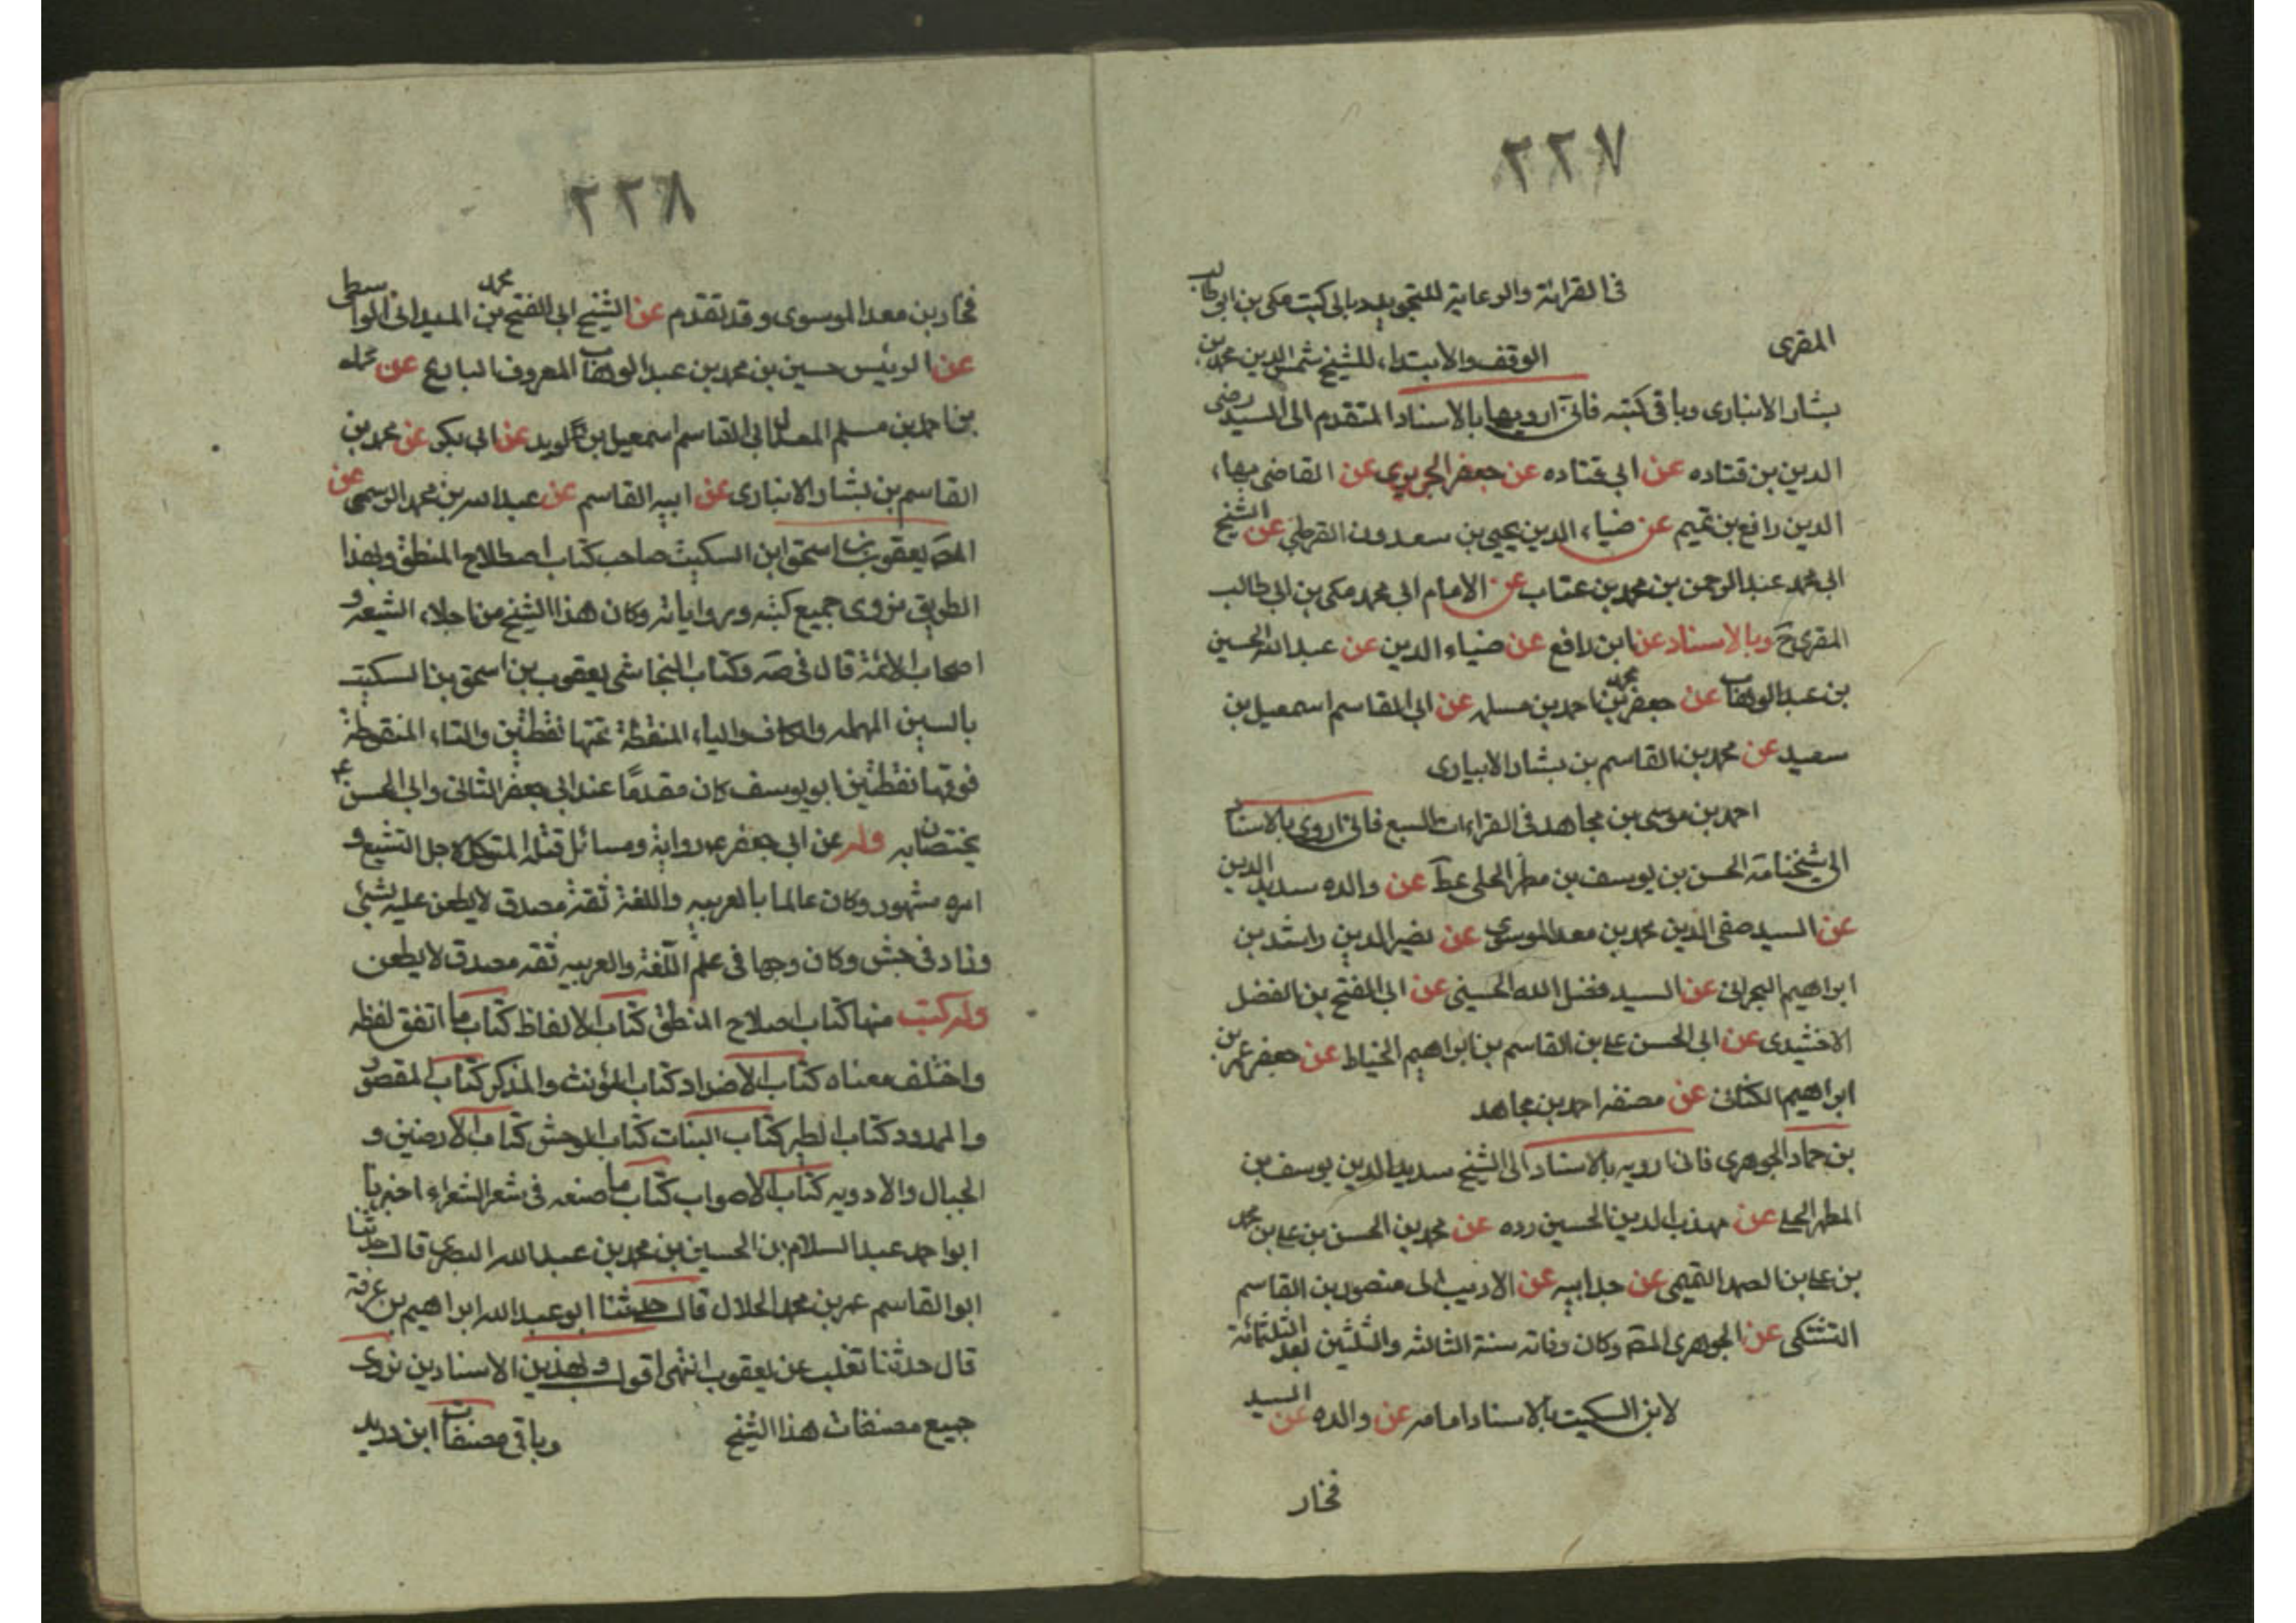 ٢٢٧
فى القرائة والرعاية للتجويد وباقى كتب مكى بن ابى طالب
المقرى الوقف والابتداء للشيخ شمس الدين محمد بن
بشار الانبارى وباقى كتبه فانى ارويها بالاسناد المتقدم الى السيد رضى
الدين بن قتاده عن ابى قتاده عن جعفر الجريرى عن القاضى بهاء
الدين رافع بن تميم عن ضياء الدين يحيى بن سعدون القرطبى عن الشيخ
ابى محمد عبد الرحمن بن محمد بن عتاب عن الامام ابى محمد مكى بن ابى طالب
المقرى ح وبالاسناد عن ابن رافع عن ضياء الدين عن عبد الله الحسين
بن عبد الوهاب عن جعفر محمد بن احمد بن مسلم عن ابى القاسم اسمعيل بن
سعيد عن محمد بن القاسم بن بشار الابيارى
احمد بن موسى بن مجاهد فى القراءات السبع فانى اروى بالاسناد
الى شيخنا مة الحسن بن يوسف بن مطر الحلى عن والده سديد الدين
عن السيد صفى الدين محمد بن معد الموسوى عن نضير الدين راشد بن
ابراهيم البحرانى عن السيد فضل الله الحسينى عن ابى الفتح بن الفضل
الاخشيدى عن ابى الحسن على بن القاسم بن ابراهيم الخياط عن جعفر عمر بن
ابراهيم الكنانى عن مصنفه احمد بن مجاهد
بن حماد الجوهرى فانا ارويه بالاسناد الى الشيخ سديد الدين يوسف بن
المطهر الحلى عن مهذب الدين الحسين رده عن محمد بن الحسن بن على بن محمد
بن على بن الصمد القيمى عن جد ابيه عن الاديب ابى منصور بن القاسم
التشكى عن الجوهرى المص وكان وفاته سنة الثالثه والثلثين بعد الثلثمائة
لابن السكيت بالاسناد امامه عن والده عن السيد
فخار
٢٢٨
فخار بن معد الموسوى وقد تقدم عن الشيخ ابى الفتح محمد بن الميدانى الواسطى
عن الرئيس حسين بن محمد بن عبد الوهاب المعروف البارع عن محمد
بن احمد بن مسلم المعدل ابى القاسم اسمعيل بن سويد عن ابى بكر عن محمد بن
القاسم بن بشار الانبارى عن ابيه القاسم عن عبد الله بن محمد الرسمى عن
المص يعقوب بن اسحق ابن السكيت صاحب كتاب اصطلاح المنطق وبهذا
الطريق نروى جميع كتبه وبرواياته وكان هذا الشيخ من اجلاء الشيعه و
اصحاب الائمة قال فى صه وكتاب النجاشى يعقوب بن اسحق بن السكيت
بالسين المهمله والكاف والياء المنقطة تحتها نقطتين والتاء المنقوطة
فوقها نقطتين ابو يوسف كان مقدمًا عند ابى جعفر الثانى وابى الحسن ع
يختصان به وله عن ابى جعفر ع رواية ومسائل قتله المتوكل لاجل التشيع و
امره مشهور وكان عالما بالعربيه واللغة ثقة مصدق لا يطعن عليه بشئ
وزاد فى جش وكان وجها فى علم اللغة والعربيه ثقه مصدق لا يطعن
وله كتب منها كتاب اصلاح المنطق كتاب الالفاظ كتاب ما اتفق لفظه
واختلف معناه كتاب الاضداد كتاب المؤنث والمذكر كتاب المقصور
والممدود كتاب الطير كتاب النبات كتاب الوحش كتاب الارضين و
الجبال والادويه كتاب الاصواب كتاب ما صنعه فى شعر الشعراء اخبرنا
ابو احمد عبد السلام بن الحسين بن محمد بن عبد الله البصرى قال حدثنا
ابو القاسم عمر بن محمد الحلال قال حدثنا ابو عبد الله ابراهيم بن عرفة
قال حدثنا تغلب عن يعقوب انتهى اقول وبهذين الاسنادين نروى
جميع مصنفات هذا الشيخ وباقى مصنفات ابن دريد